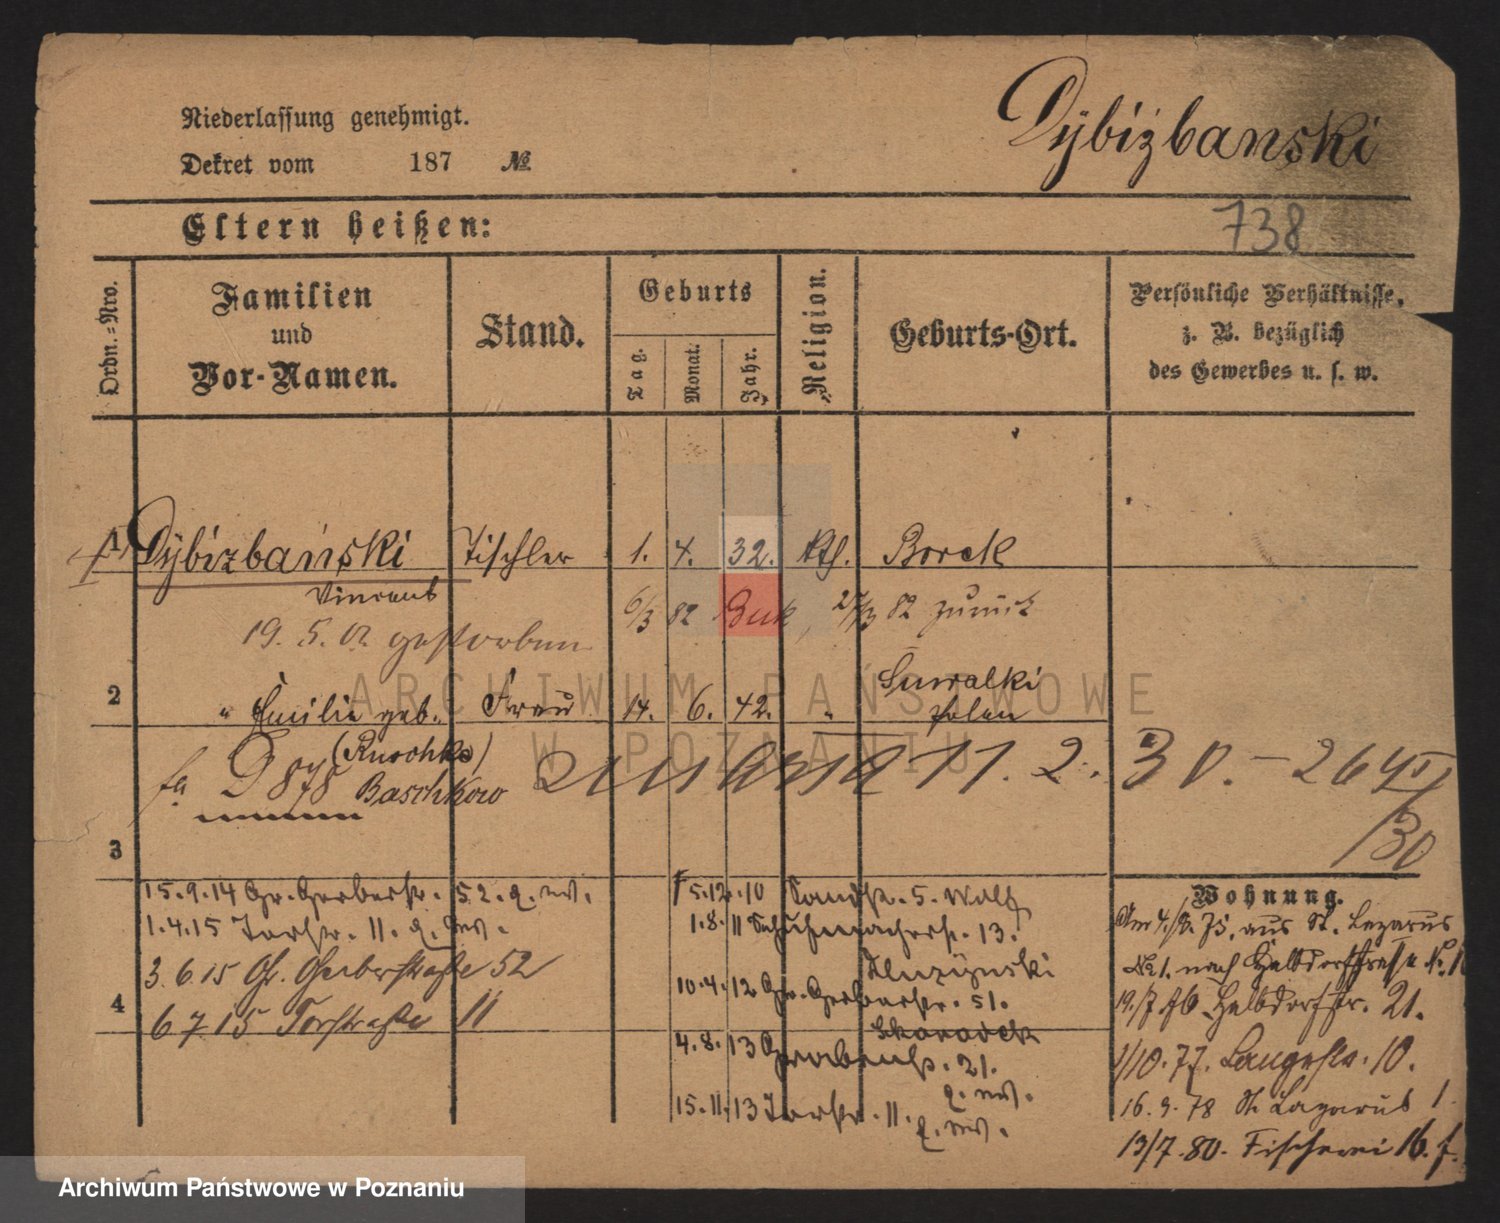 Niederlassung genehmigt.
Dekret vom 187 №
Dÿbiżbanski
738
Eltern heißen:
Ordn.-Nro.
Familien
und
Vor-Namen.
Stand.
Geburts
Tag.
Monat.
Jahr.
Religion.
Geburts-Ort.
Persönliche Verhältnisse,
z. B. bezüglich
des Gewerbes u. s. w.
1 Dÿbizbański Tischler 1. 4. 32. kth. Borek
Vincent
6/3 82 Buk, 27/3 82 zurück
19. 5. 02 gestorben
2 " Emilie geb. Frau 14. 6. 42. " Suwalki
Polen
(Ruschke)
fa D 878 Baschkow
11. 2. 30. - 264
/30
3
15.9.14 Gr. Gerberstr. 52. b. w.
1.4.15 Torstr. 11. b. w.
3. 6. 15 Gr. Gerberstraße 52
4
6 7 15 Torstraße 11
5.12.10 Sandstr. 5. Wolff
1.8.11 Schuhmacherstr. 13.
10.4.12 Gr. Gerberstr. 51.
4.8.13 Grabenstr. 21.
b. w.
15.11.13 Torstr. 11.
b. w.
Wohnung.
Am 4./8. 75. aus St. Lazarus
No 1. nach Halbdorfstrasse No. 1
19./7. 76 Halbdorfstr. 21.
1/10. 77. Langestr. 10.
16. 9. 78 St. Lazarus 1.
13/7. 80. Fischerei 16.
ARCHIWUM PAŃSTWOWE
W POZNANIU
Archiwum Państwowe w Poznaniu